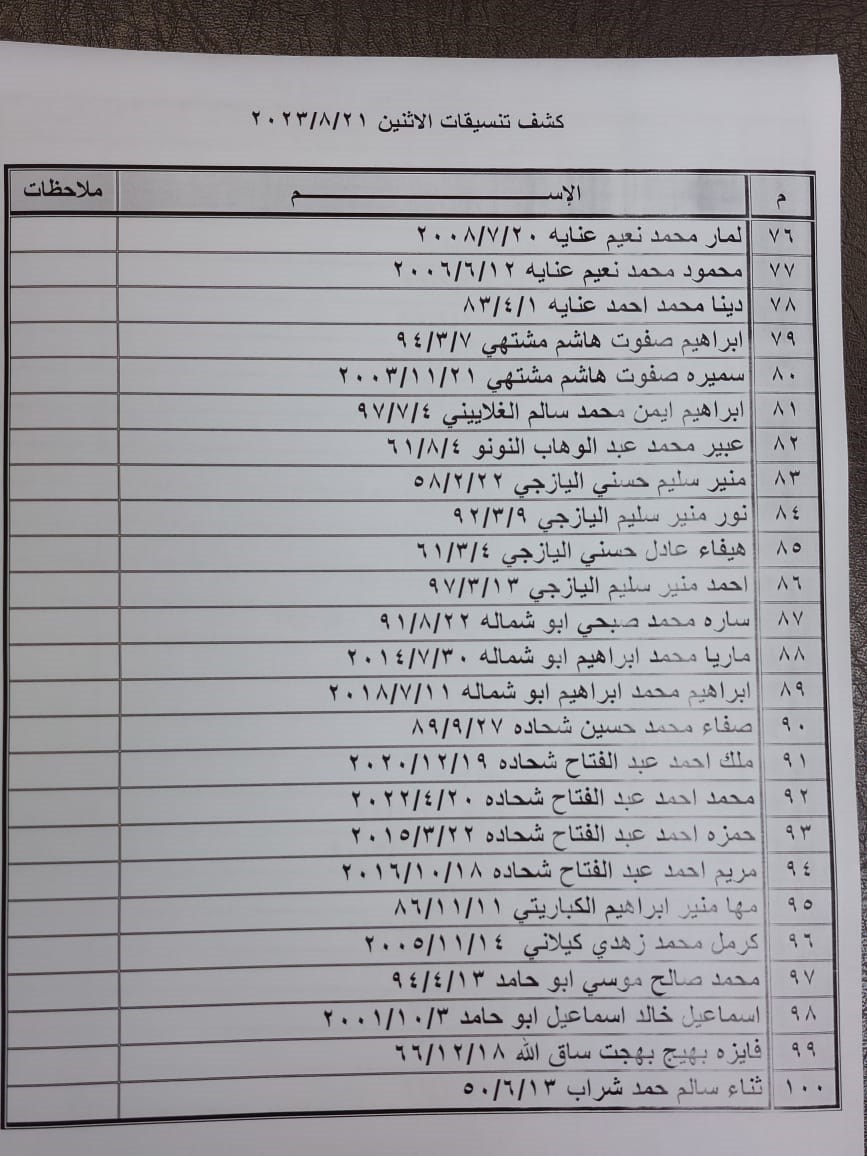 كشف تنسيقات الاثنين ٢٠٢٣/٨/٢١
م الإســـــم ملاحظات
٧٦ لمار محمد نعيم عنايه ٢٠٠٨/٧/٢٠
٧٧ محمود محمد نعيم عنايه ٢٠٠٦/٦/١٢
٧٨ دينا محمد احمد عنايه ٨٣/٤/١
٧٩ ابراهيم صفوت هاشم مشتهي ٩٤/٣/٧
٨٠ سميره صفوت هاشم مشتهي ٢٠٠٣/١١/٢١
٨١ ابراهيم ايمن محمد سالم الغلاييني ٩٧/٧/٤
٨٢ عبير محمد عبد الوهاب النونو ٦١/٨/٤
٨٣ منير سليم حسني اليازجي ٥٨/٢/٢٢
٨٤ نور منير سليم اليازجي ٩٢/٣/٩
٨٥ هيفاء عادل حسني اليازجي ٦١/٣/٤
٨٦ احمد منير سليم اليازجي ٩٧/٣/١٣
٨٧ ساره محمد صبحي ابو شماله ٩١/٨/٢٢
٨٨ ماريا محمد ابراهيم ابو شماله ٢٠١٤/٧/٣٠
٨٩ ابراهيم محمد ابراهيم ابو شماله ٢٠١٨/٧/١١
٩٠ صفاء محمد حسين شحاده ٨٩/٩/٢٧
٩١ ملك احمد عبد الفتاح شحاده ٢٠٢٠/١٢/١٩
٩٢ محمد احمد عبد الفتاح شحاده ٢٠٢٢/٤/٢٠
٩٣ حمزه احمد عبد الفتاح شحاده ٢٠١٥/٣/٢٢
٩٤ مريم احمد عبد الفتاح شحاده ٢٠١٦/١٠/١٨
٩٥ مها منير ابراهيم الكباريتي ٨٦/١١/١١
٩٦ كرمل محمد زهدي كيلاني ٢٠٠٥/١١/١٤
٩٧ محمد صالح موسي ابو حامد ٩٤/٤/١٣
٩٨ اسماعيل خالد اسماعيل ابو حامد ٢٠٠١/١٠/٣
٩٩ فايزه بهيج بهجت ساق الله ٦٦/١٢/١٨
١٠٠ ثناء سالم حمد شراب ٥٠/٦/١٣